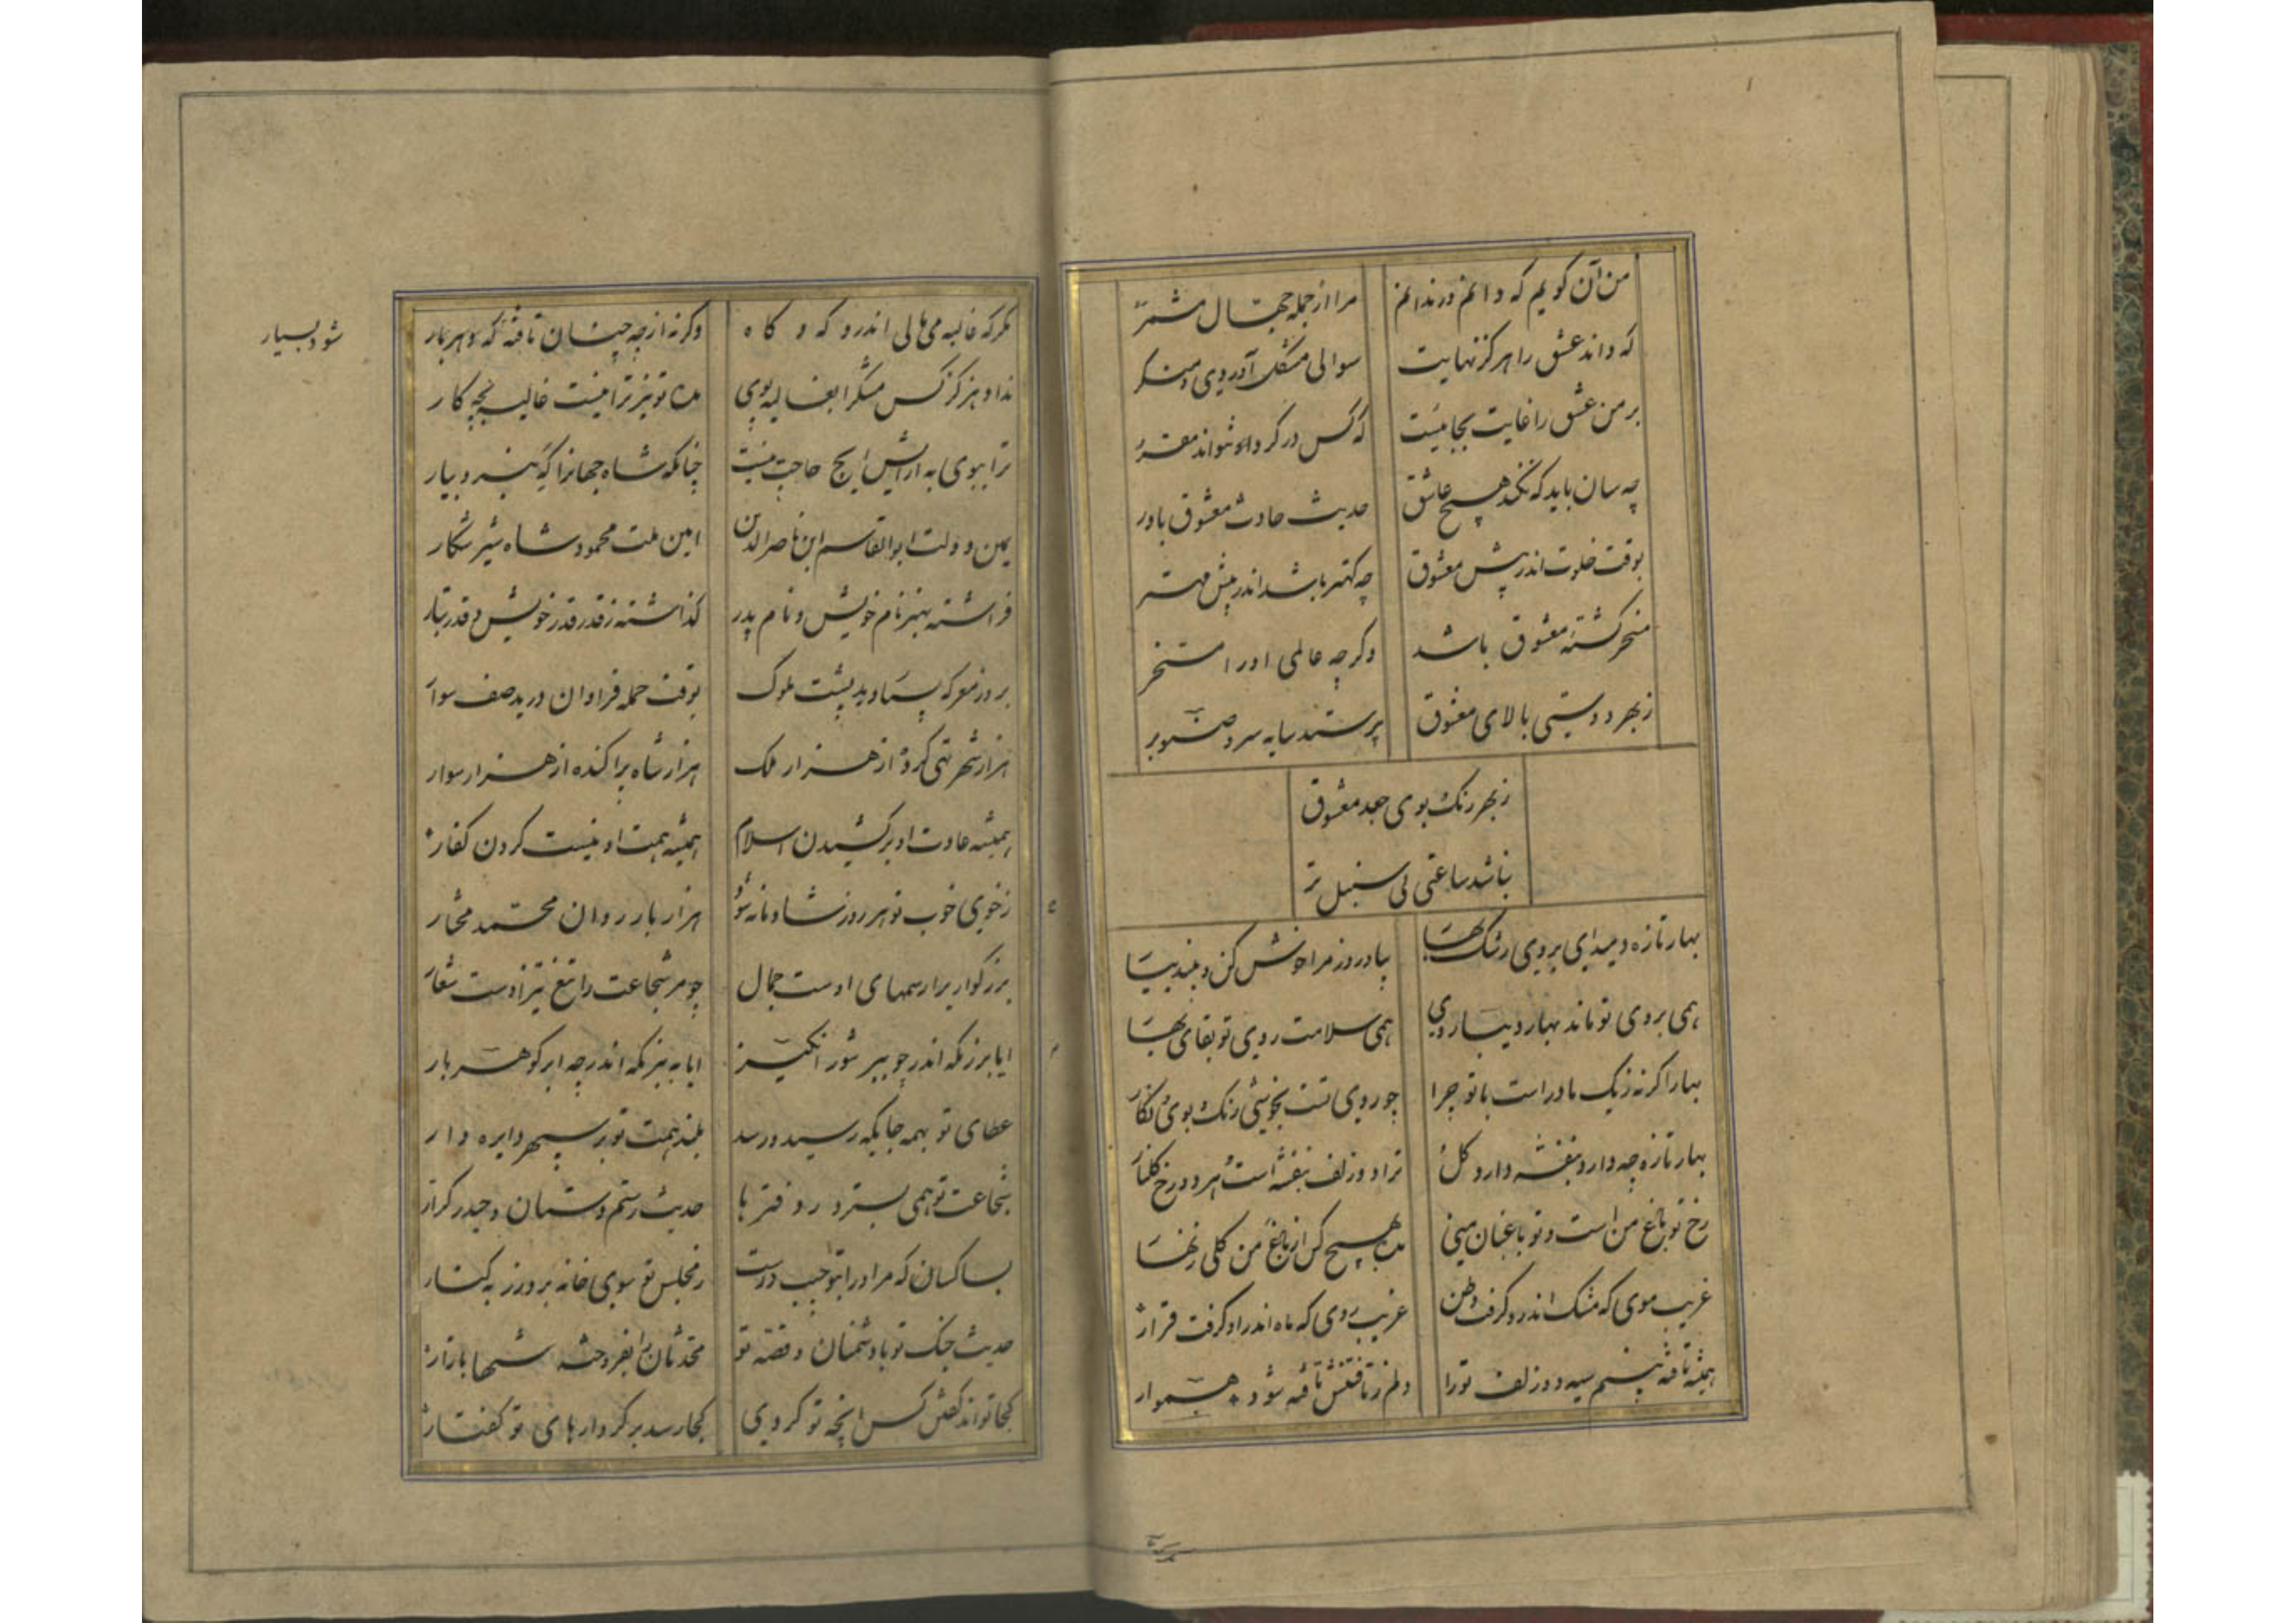 من آن گویم که دانم ور ندانم
مرا از جمله جهال مشمر
که داند عشق را هرگز نهایت
سوالی مشکل آوردی و منکر
بر من عشق را غایت بجا نیست
که کس در گرد او نتواند
چه سان باید که نکند هیچ عاشق
حدیث حادث معشوق باور
بوقت خلوت اندر پیش معشوق
چه کهتر باشد اندر پیش مهتر
مسخر گشتهٔ معشوق باشد
وگرچه عالمی او را مسخر
زبهر دوستی بالای معشوق
پرستد سایه سرو صنوبر
زبهر رنک بوی جعد معشوق
نباشد ساعتی بی سنبل تر
بهار تازه دمید ای بروی رشک بهار
بیا و روز مرا خوش کن و نبید بیار
همی بروی تو ماند بهار دیبا روی
همی سلامت روی تو بقای بهار
بهار اگر نه زیک مادر است با تو چرا
چو روی تست بخوشی رنک بوی نگار
بهار تازه چه دارد بنفشه دارد کل
ترا دو زلف بنفشه است هر دو رخ کلنار
رخ تو باغ من است و تو باغبان منی
مده بهیچ کس از باغ من کلی زنهار
غریب موی که مشک اندرو گرفت وطن
غریب روی که ماه اندر او گرفت قرار
همیشه تافته بینم سیه دو زلف تورا
دلم ز تافتنش تافته شود هموار
مگر که غالیه می مالی اندرو که و کاه
وگرنه از چه چنان تافته که و هر بار
نداد هرگز کس مشک را بغالیه بوی
مده تو نیز ترا نیست غالیه بچه کار
ترا ببوی به ارایش ایچ حاجت نیست
چنانکه شاه جهانرا گه نبرد بیار
یمین دولت ابوالقاسم ابن ناصرالدین
امین ملت محمود شاه شیر شکار
فراشته بهنر نام خویش و نام پدر
گذاشته ز قدر قدر خویش و قدر تبار
بروز معرکه بسیار دید پشت ملوک
بوقت حمله فراوان درید صف سوار
هزار شهر تهی کرد از هزار ملک
هزار شاه پراکنده از هزار سوار
همیشه عادت او برکشیدن اسلام
همیشه همت او نیست کردن کفار
زخوی خوب تو هر روز شادمانه شود
هزار بار روان محمد مختار
بزرکوار برا رسمهای اوست جمال
چو مر شجاعت را تیغ تیز اوست شعار
ایا برزمکه اندر چو ببر شور انکیز
ایا ببزمکه اندر چه ابر کوهر بار
عطای تو بهمه جایکه رسید و رسد
بلند همت تو بر سپهر دایره وار
شجاعت تو همی بسترد ز دفترها
حدیث رستم دستان و حیدر کرار
بسا کسان که مر او را
ز مجلس تو سوی خانه برد زر به کنار
حدیث جنک تو با دشمنان و قصه تو
محدثان را بفروخته شبها بازار
کجا تواند گفتن کس انچه تو کردی
کجا رسد بر کردارهای تو گفتار
شود بسیار